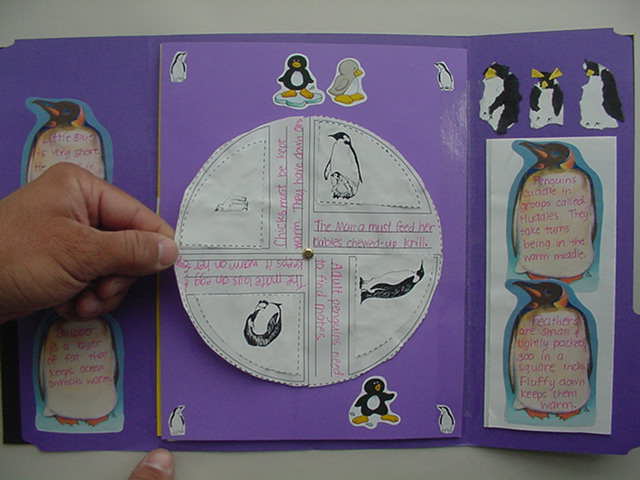 Little Blue
is very short.
Blubber
is a layer
of fat that
keeps ocean
animals warm.
Chicks must be kept
warm. They have down on
The Mama must feed her
babies chewed-up krill.
Adult penguins need
to find mates.
The male lays an egg &
keeps it warm on her
Penguins
huddle in
groups called
Huddles. They
take turns
being in the
warm middle.
Feathers
are small &
tightly packed,
300 in a
square inch.
Fluffy down
keeps them
warm.